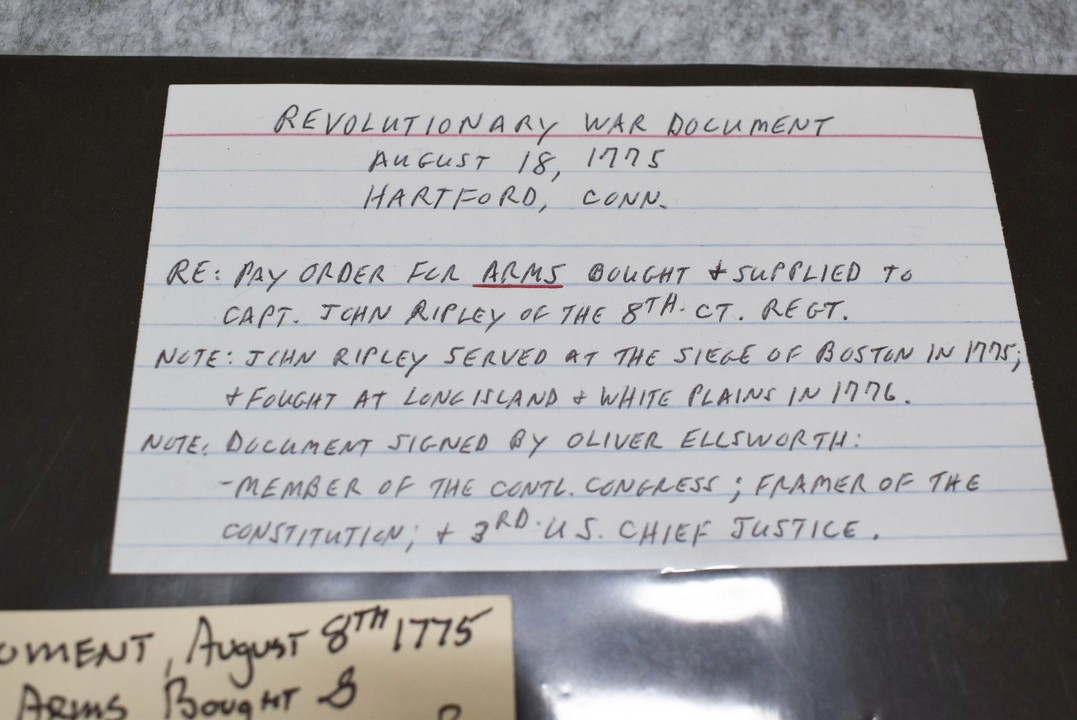 REVOLUTIONARY WAR DOCUMENT
AUGUST 18, 1775
HARTFORD, CONN.
RE: PAY ORDER FOR ARMS BOUGHT + SUPPLIED TO
CAPT. JOHN RIPLEY OF THE 8TH. CT. REGT.
NOTE: JOHN RIPLEY SERVED AT THE SIEGE OF BOSTON IN 1775;
+ FOUGHT AT LONG ISLAND + WHITE PLAINS IN 1776.
NOTE: DOCUMENT SIGNED BY OLIVER ELLSWORTH:
-MEMBER OF THE CONTL. CONGRESS; FRAMER OF THE
CONSTITUTION; + 3RD. U.S. CHIEF JUSTICE.
UMENT, August 8TH 1775
Arms Bought &